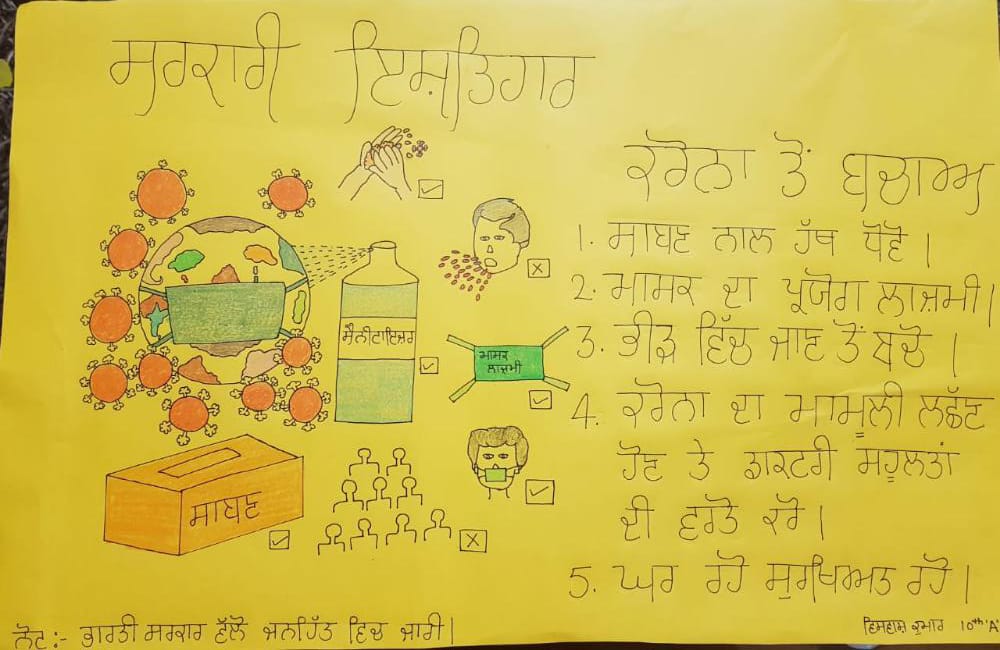 ਸਰਕਾਰੀ ਇਸ਼ਤਿਹਾਰ
ਕਰੋਨਾ ਤੋਂ ਬਚਾਅ
1. ਸਾਬਣ ਨਾਲ ਹੱਥ ਧੋਵੋ।
2. ਮਾਸਕ ਦਾ ਪ੍ਰਯੋਗ ਲਾਜ਼ਮੀ।
3. ਭੀੜ ਵਿੱਚ ਜਾਣ ਤੋਂ ਬਚੋ।
4. ਕਰੋਨਾ ਦਾ ਮਾਮੂਲੀ ਲਛੱਣ
ਹੋਣ ਤੇ ਡਾਕਟਰੀ ਸਹੂਲਤਾਂ
ਦੀ ਵਰਤੋ ਕਰੋ।
5. ਘਰ ਰਹੋ ਸੁਰਖਿਅਤ ਰਹੋ।
ਸੈਨੀਟਾਇਜ਼ਰ
ਮਾਸਕ
ਲਾਜ਼ਮੀ
ਸਾਬਣ
ਨੋਟ:- ਭਾਰਤੀ ਸਰਕਾਰ ਵੱਲੋ ਜਨਹਿੱਤ ਵਿਚ ਜਾਰੀ।
ਕੁਮਾਰ 10th 'A'